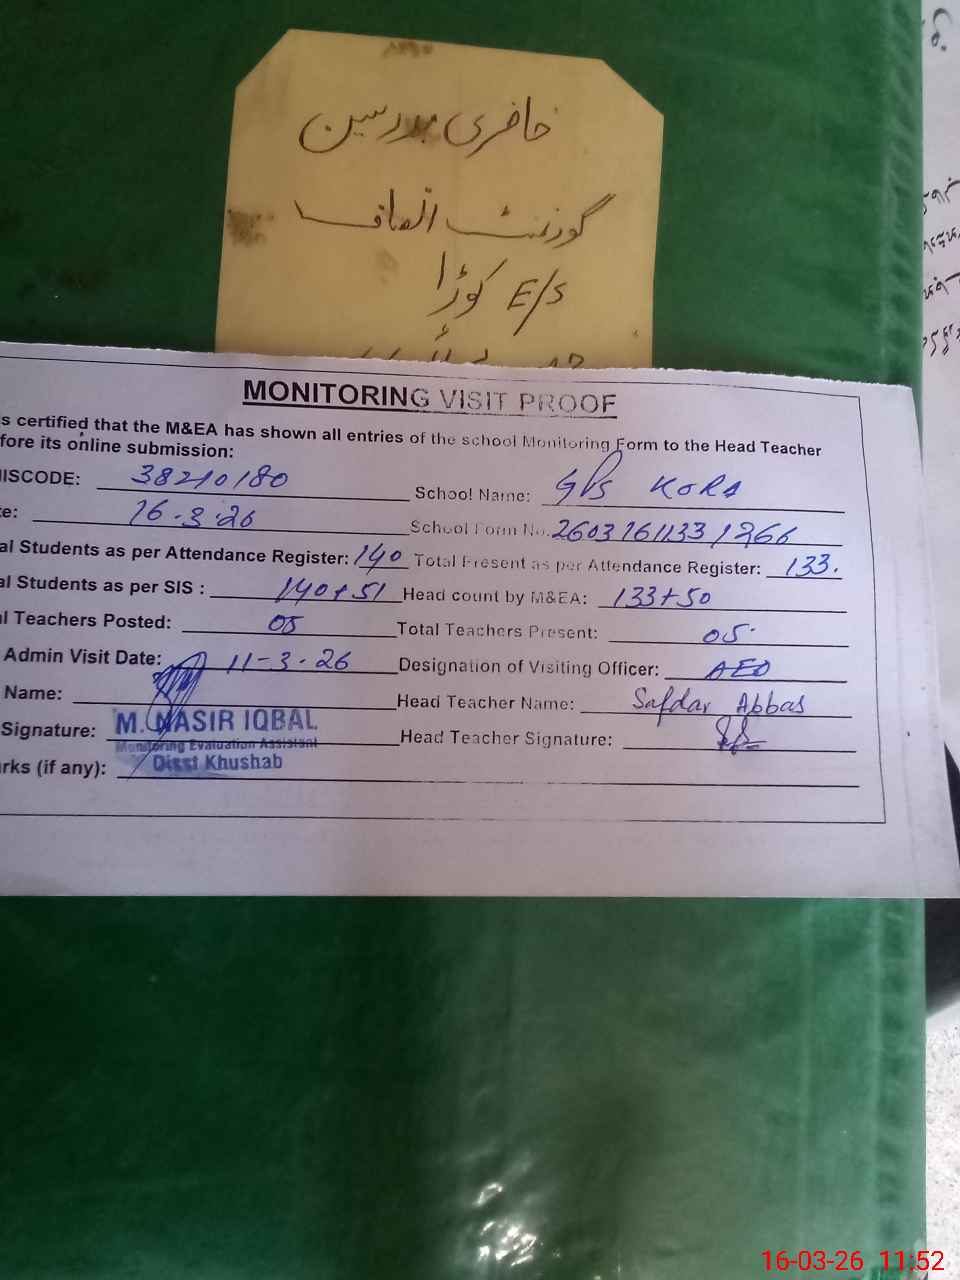 حاضری مدرسین
گورنمنٹ انصاف
E/S کوڑا
MONITORING VISIT PROOF
s certified that the M&EA has shown all entries of the school Monitoring Form to the Head Teacher
fore its online submission:
MISCODE: 38210180 School Name: GPS KORA
te: 16-3-26 School Form No. 2603161133
al Students as per Attendance Register: 140 Total Present as per Attendance Register: 133.
al Students as per SIS : 140+51 Head count by M&EA: 133+50
al Teachers Posted: 05 Total Teachers Present: 05
Admin Visit Date: 11-3-26 Designation of Visiting Officer: AEO
Name: Head Teacher Name: Safdar Abbas
Signature: M. NASIR IQBAL Head Teacher Signature:
Monitoring Evaluation Assistant
Distt Khushab
rks (if any):
16-03-26 11:52